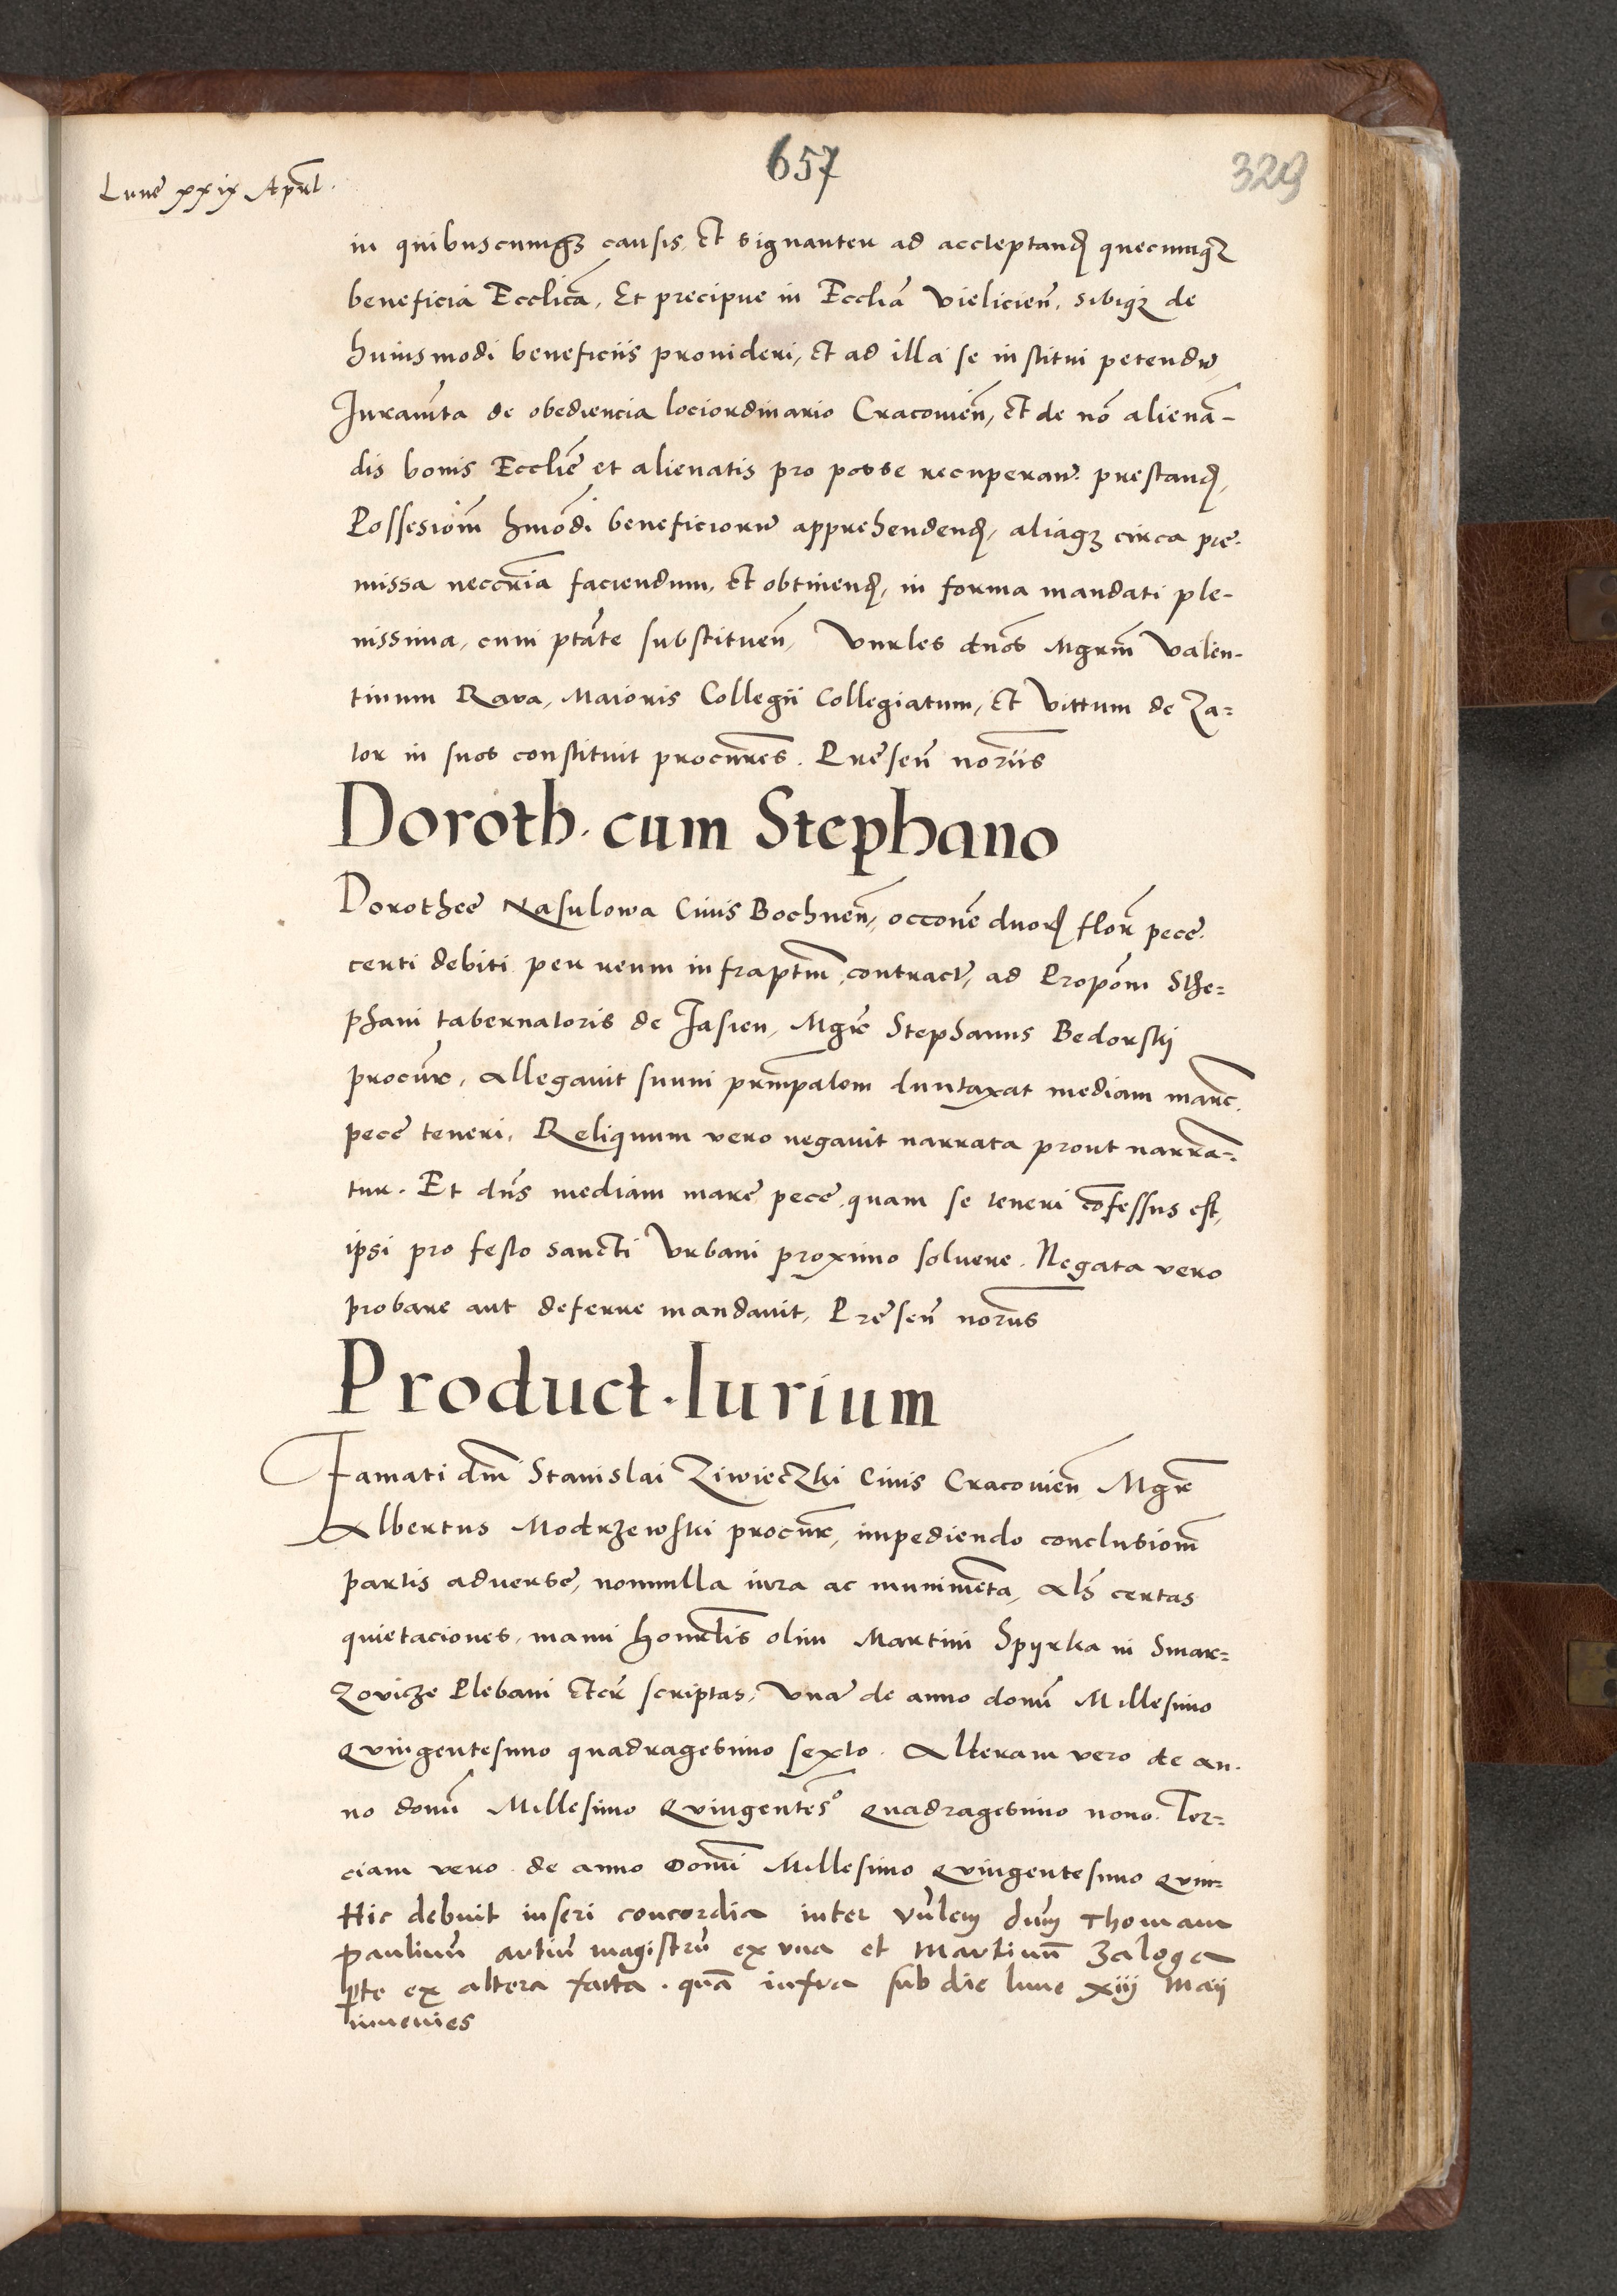 657
329
Lune xxix Aprl.
in quibuscumqz causis, et signanter ad acceptand quecumqz
beneficia Ecclicã, Et precipue in Ecclia Vielicien̄, sibiqz de
huiusmodi beneficiis provideri, et ad illa se institui petendū,
Juramta de obediencia lociordinario Cracovien̄, et de nō alienā-
dis bonis Ecclie et alienatis pro posse recuperan. prestand,
Possesiom hmōdi beneficiorū apprehendend, aliaqz circa pre-
missa neccria faciendum, et obtinend, in forma mandati ple-
nissima, cum ptāte substituen̄, Vnrles dnos Mgrm Valen-
tinum Rava, Maioris Collegii Collegiatum, et Vittum de Za-
tor in suos constituit procures. Presen̄ noriis
Doroth. cum Stephano
Dorothee Nasulowa Civis Bochnen̄, occōne duor flor̄ pece.
certi debiti per reum infraptm contract, ad Propōm Sthe-
phani tabernatoris de Jasien, Mgr̄ Stephanus Bedorskj
procur̄, allegavit suum prmpalem duntaxat mediam marc.
pece teneri. Reliquum vero negavit narrata prout narra-
tur. Et dns mediam marc pece, quam se teneri cōfessus est,
ipsi pro festo sancti Vrbani proximo solvere. Negata vero
probare aut deferre mandavit, Presen̄ noriis
Product. Iurium
Famati dni Stanislai Ziwieczki Civis Cracovien̄ Mgr̄
Albertus Modrzewski procur̄, impediendo conclusiom
partis adverse, nonnulla iura ac munimēta, als certas
quietaciones, manu honrlis olim Martini Spyrka in Smar-
zovicze Plebani etcr̄ scriptas, Vnā de anno domī Millesimo
Quingentesimo quadragesimo sexto. Alteram vero de an-
no domī Millesimo Quingentes° Quadragesimo nono. Ter-
ciam vero de anno Domī Millesimo Quingentesimo Quin-
Hic debuit inseri concordia inter Vn̄lem dnm Thomam
Paulinū artiū magistrū ex una et Martinū Zaloga
pte ex altera facta. quā infra sub die lune xiij Maij
invenies